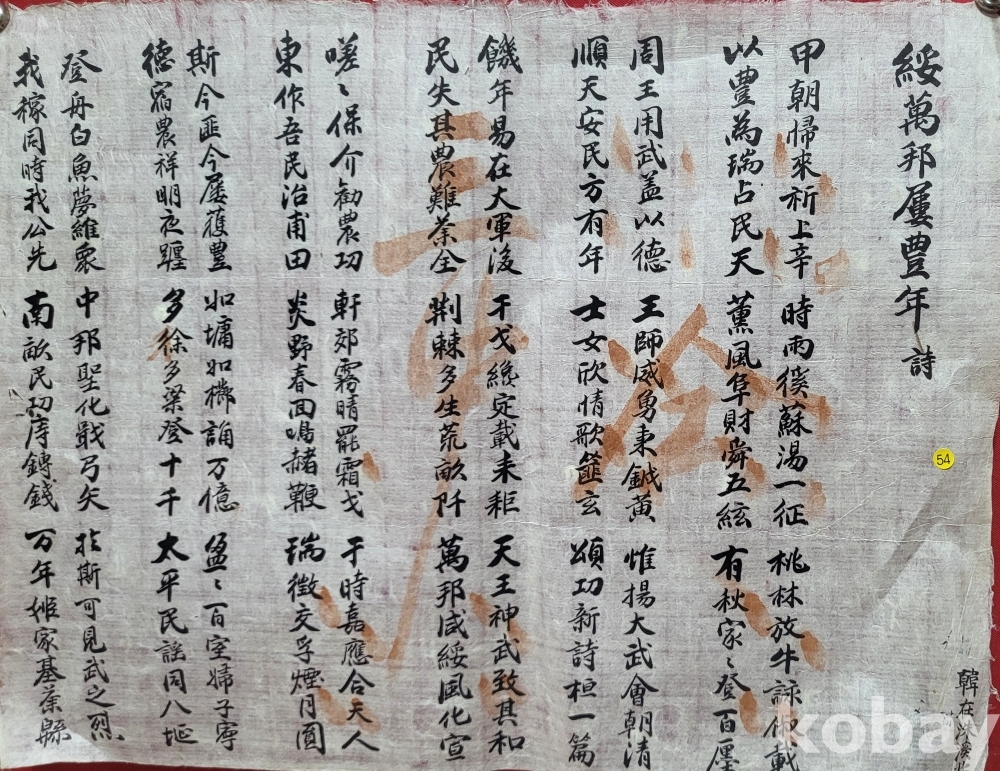 綏萬邦屢豊年 詩
甲朝帰來祈上辛 時雨徯蘇湯一征 桃林放牛詠俶載
以豊為瑞占民天 薰風阜財舜五絃 有秋家〻登百廛
周王用武蓋以德 王師威勇東鉞黃 惟揚大武會朝清
順天安民方有年 士女欣情歌篚玄 頌功新詩桓一篇
饑年易在大軍後 干戈纔定載耒耟 天王神武致其和
民失其農難全 荆棘多生荒畝阡 萬邦咸綏風化宣
嗟〻保介勸農功 軒郊霧晴罷霜戈 于時嘉應合天人
東作吾民治甫田 炎野春回鳴赭鞭 瑞徵交孚煙月圓
斯今匪今屢獲豊 如墉如櫛誦万億 盈〻百室婦子寧
德農祥明夜躔 多徐多梁登十千 太平民謠同八埏
登舟白魚夢維衆 中邦聖化戢弓矢 於斯可見武之烈
我稼同時我公先 南畝民功庤鎛錢 万年姬家基業縣
韓在洙
54
kobay